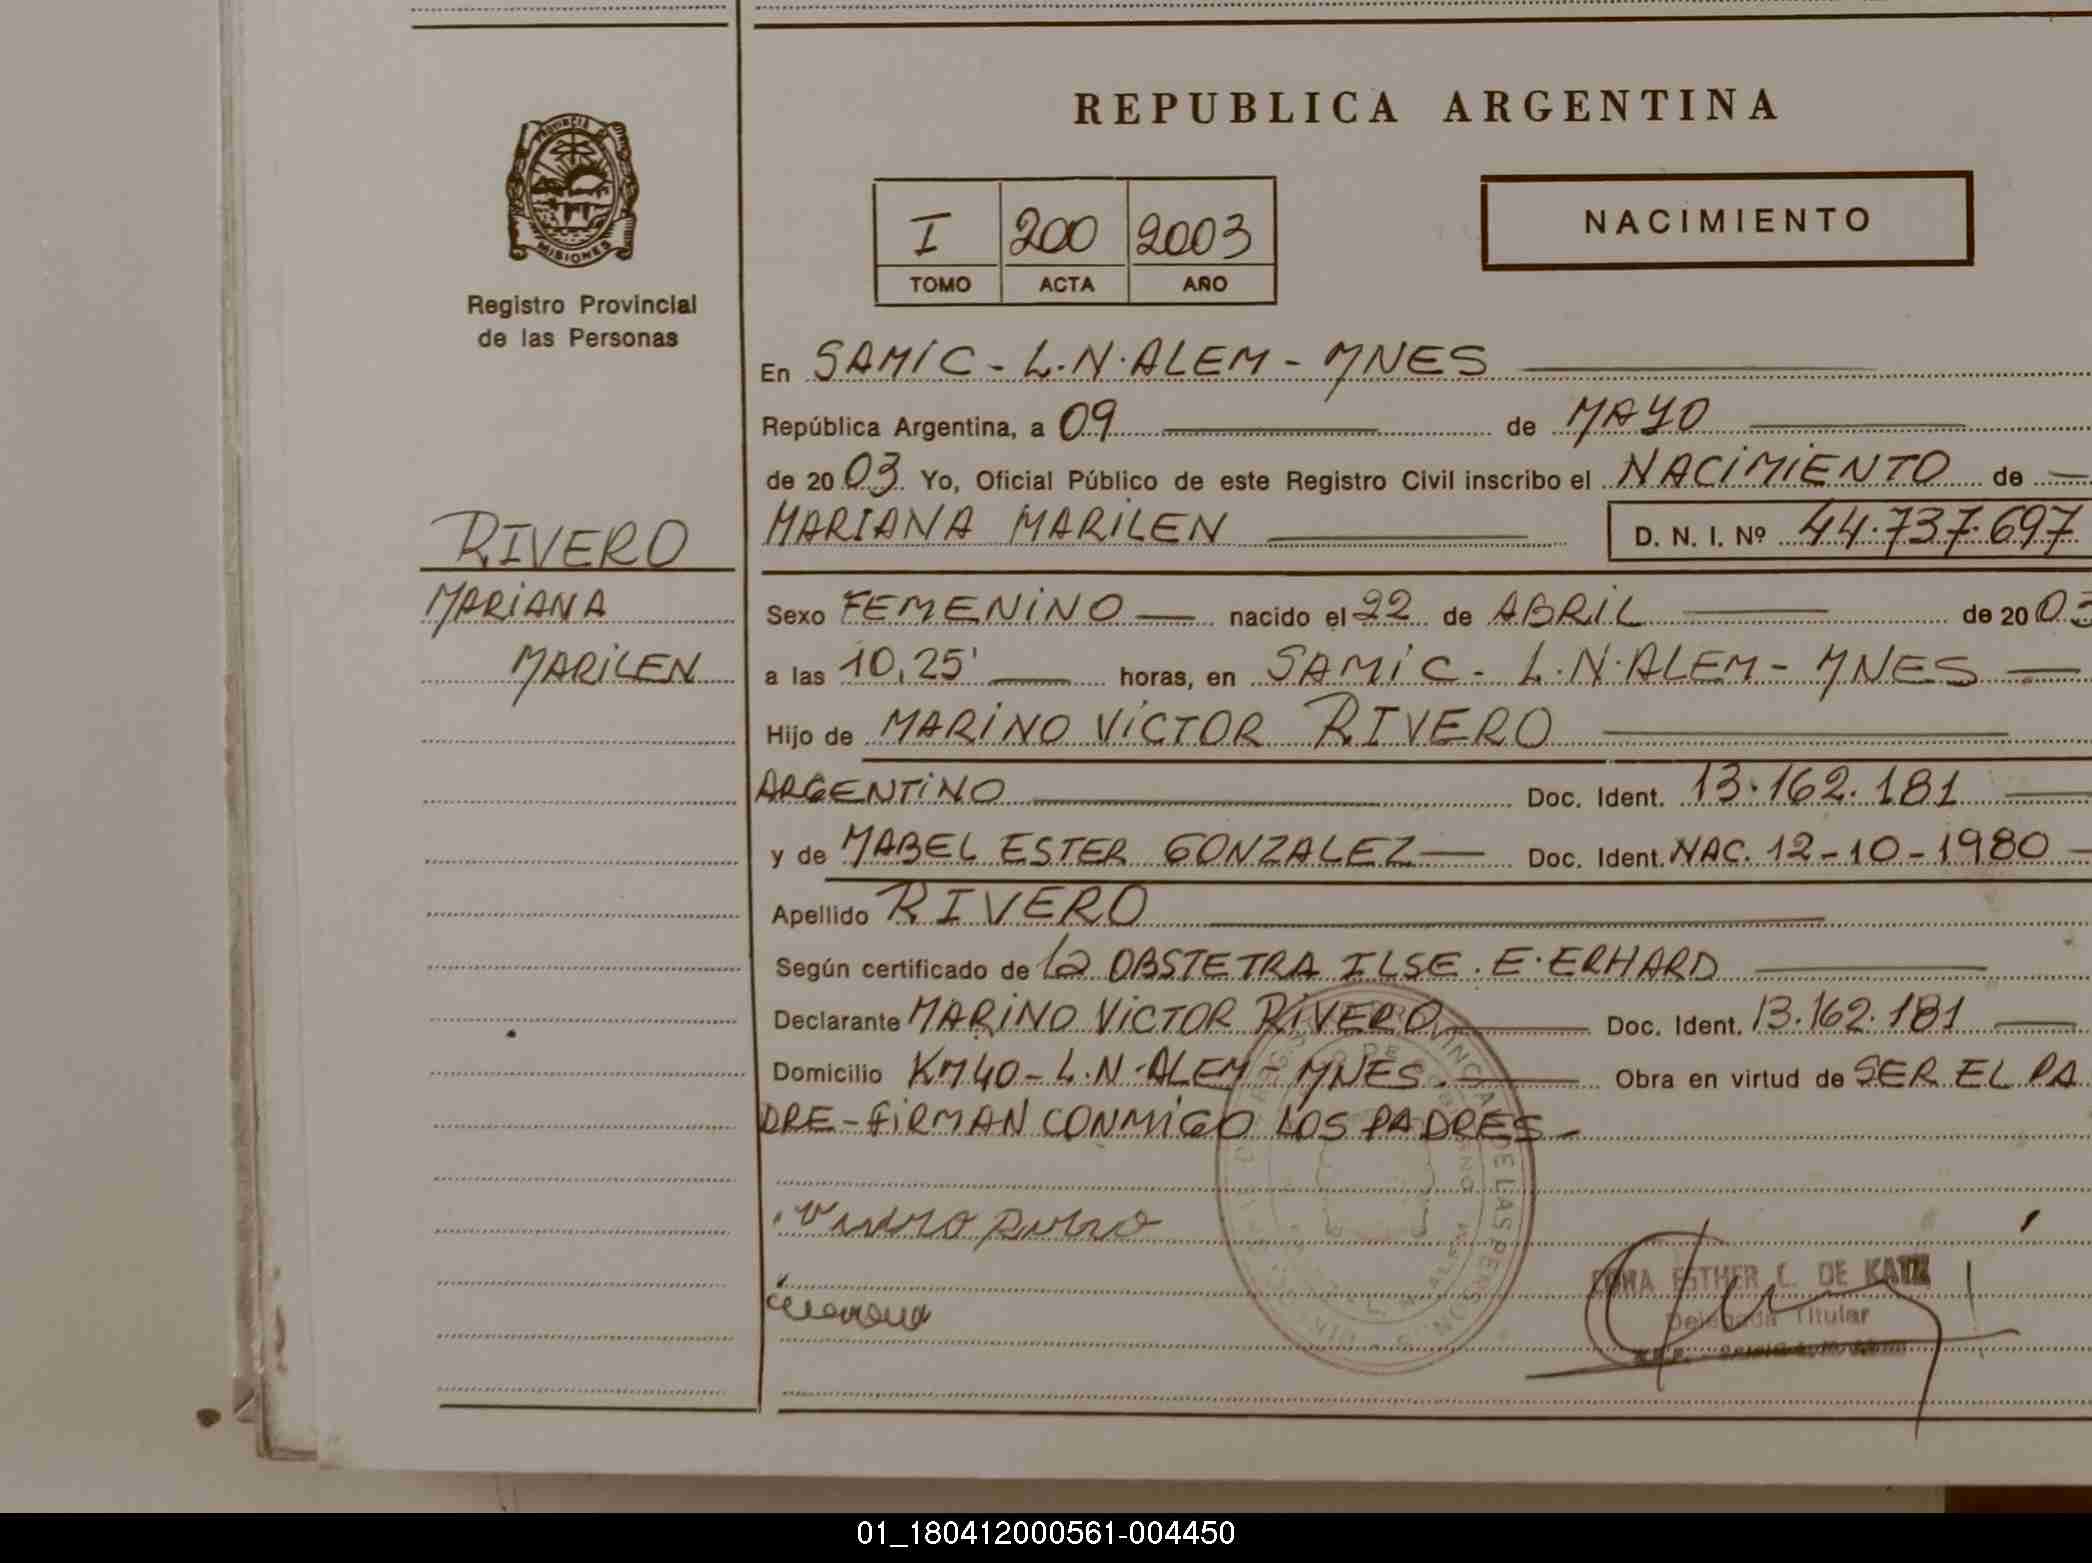 REPUBLICA ARGENTINA
PROVINCIA DE
MISIONES
Registro Provincial
de las Personas
I 200 2003
TOMO ACTA AÑO
NACIMIENTO
En SAMIC - L.N. ALEM - MNES
República Argentina, a 09 de MAYO
de 2003 Yo, Oficial Público de este Registro Civil inscribo el NACIMIENTO de
RIVERO
MARIANA
MARILEN
MARIANA MARILEN D. N. I. Nº 44.737.697
Sexo FEMENINO nacido el 22 de ABRIL de 2003
a las 10,25' horas, en SAMIC - L.N. ALEM - MNES
Hijo de MARINO VICTOR RIVERO
ARGENTINO Doc. Ident. 13.162.181
y de MABEL ESTER GONZALEZ Doc. Ident. NAC. 12-10-1980
Apellido RIVERO
Según certificado de la OBSTETRA ILSE. E. ERHARD
Declarante MARINO VICTOR RIVERO Doc. Ident. 13.162.181
Domicilio KM40 - L.N. ALEM - MNES. Obra en virtud de SER EL PA
DRE - FIRMAN CONMIGO LOS PADRES -
DE LAS PERSONAS
L. N. ALEM
ESTHER C. DE KATZ
Delegada Titular
01_180412000561-004450